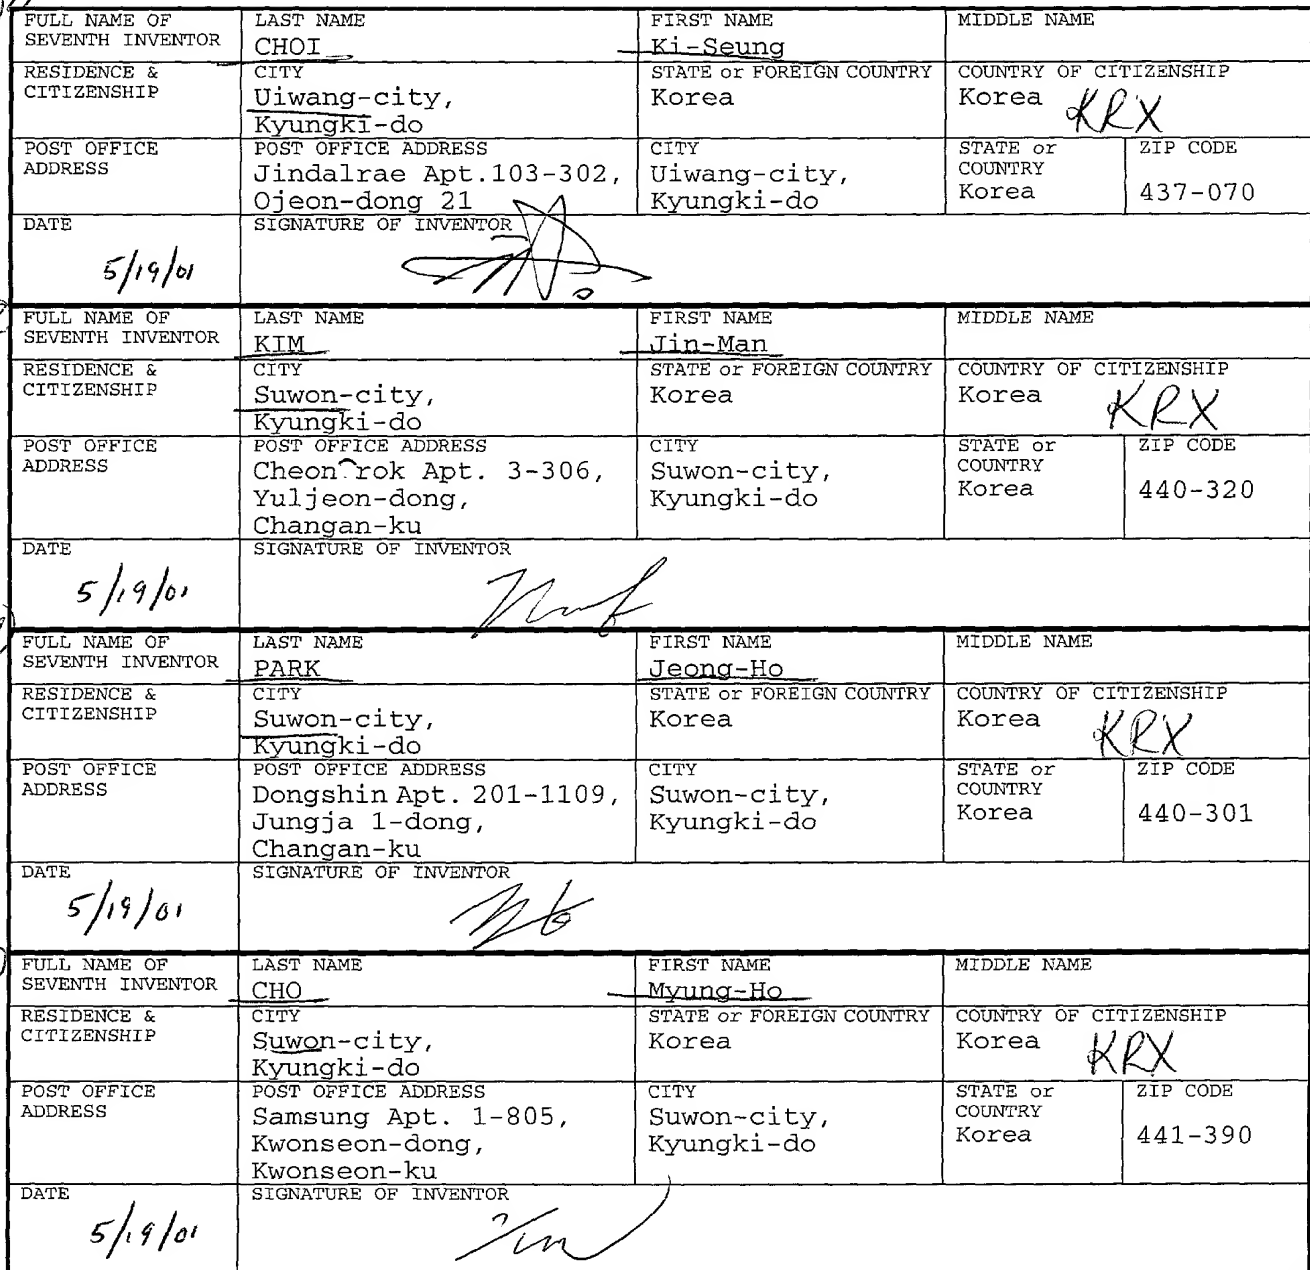 FULL NAME OF SEVENTH INVENTOR LAST NAME CHOI FIRST NAME Ki-Seung MIDDLE NAME
RESIDENCE & CITIZENSHIP CITY Uiwang-city, Kyungki-do STATE or FOREIGN COUNTRY Korea COUNTRY OF CITIZENSHIP Korea KRX
POST OFFICE ADDRESS POST OFFICE ADDRESS Jindalrae Apt.103-302, Ojeon-dong 21 CITY Uiwang-city, Kyungki-do STATE or COUNTRY Korea ZIP CODE 437-070
DATE 5/19/01 SIGNATURE OF INVENTOR
FULL NAME OF SEVENTH INVENTOR LAST NAME KIM FIRST NAME Jin-Man MIDDLE NAME
RESIDENCE & CITIZENSHIP CITY Suwon-city, Kyungki-do STATE or FOREIGN COUNTRY Korea COUNTRY OF CITIZENSHIP Korea KRX
POST OFFICE ADDRESS POST OFFICE ADDRESS Cheon rok Apt. 3-306, Yuljeon-dong, Changan-ku CITY Suwon-city, Kyungki-do STATE or COUNTRY Korea ZIP CODE 440-320
DATE 5/19/01 SIGNATURE OF INVENTOR
FULL NAME OF SEVENTH INVENTOR LAST NAME PARK FIRST NAME Jeong-Ho MIDDLE NAME
RESIDENCE & CITIZENSHIP CITY Suwon-city, Kyungki-do STATE or FOREIGN COUNTRY Korea COUNTRY OF CITIZENSHIP Korea KRX
POST OFFICE ADDRESS POST OFFICE ADDRESS Dongshin Apt. 201-1109, Jungja 1-dong, Changan-ku CITY Suwon-city, Kyungki-do STATE or COUNTRY Korea ZIP CODE 440-301
DATE 5/19/01 SIGNATURE OF INVENTOR
FULL NAME OF SEVENTH INVENTOR LAST NAME CHO FIRST NAME Myung-Ho MIDDLE NAME
RESIDENCE & CITIZENSHIP CITY Suwon-city, Kyungki-do STATE or FOREIGN COUNTRY Korea COUNTRY OF CITIZENSHIP Korea KRX
POST OFFICE ADDRESS POST OFFICE ADDRESS Samsung Apt. 1-805, Kwonseon-dong, Kwonseon-ku CITY Suwon-city, Kyungki-do STATE or COUNTRY Korea ZIP CODE 441-390
DATE 5/19/01 SIGNATURE OF INVENTOR